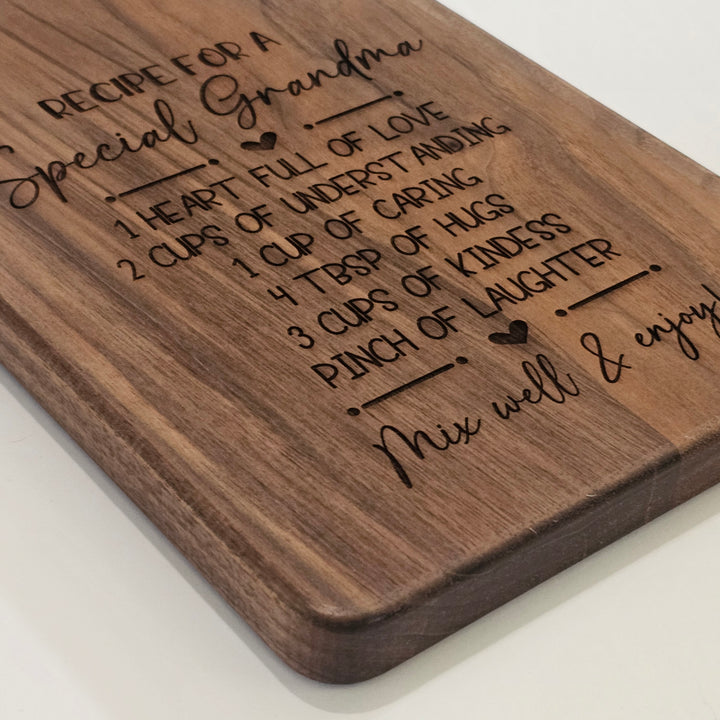 RECIPE FOR A
Special Grandma
1 HEART FULL OF LOVE
2 CUPS OF UNDERSTANDING
1 CUP OF CARING
4 TBSP OF HUGS
3 CUPS OF KINDESS
PINCH OF LAUGHTER
Mix well & enjoy!